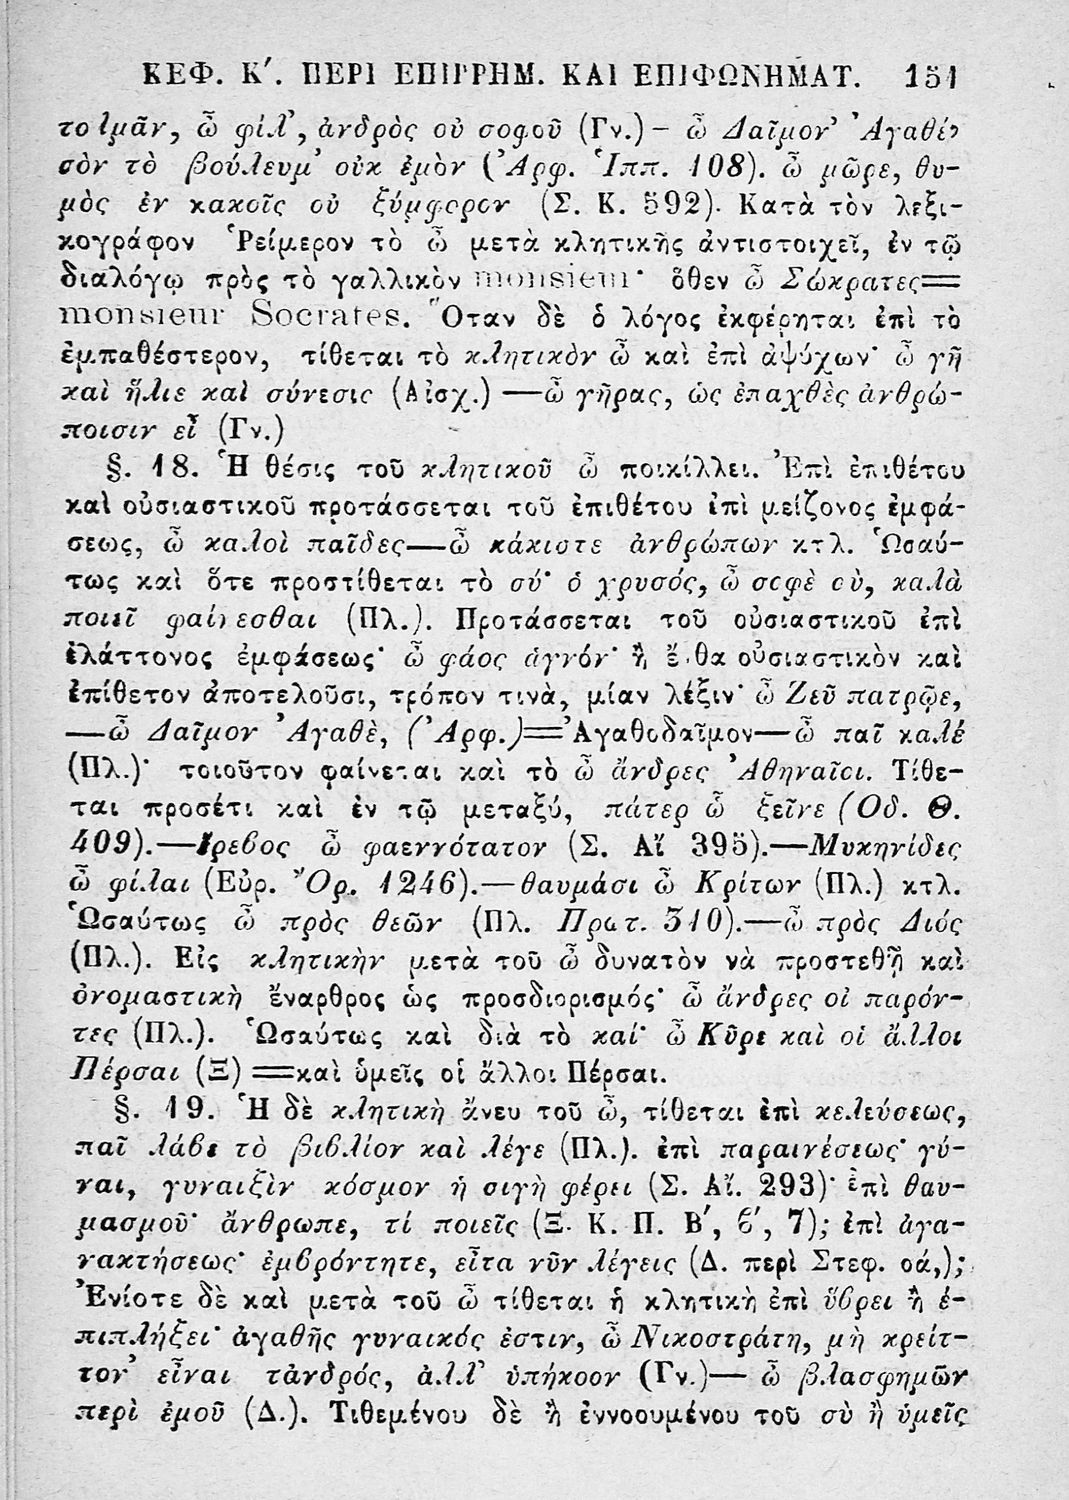 ΚΕΦ. Κ′. ΠΕΡΙ ΕΠΙΡΡΗΜ. ΚΑΙ ΕΠΙΦΩΝΗΜΑΤ. 151
τολμᾶν, ὦ φίλ', ἀνδρὸς οὐ σοφοῦ (Γν.) – ὦ Δαῖμον' Ἀγαθέ
σὸν τὸ βούλευμ' οὐκ ἐμὸν (Ἀρφ. Ἱππ. 108). ὦ μῶρε, θυ-
μὸς ἐν κακοῖς οὐ ξύμφορον (Σ. Κ. 592). Κατὰ τὸν λεξι-
κογράφον Ῥείμερον τὸ ὦ μετὰ κλητικῆς ἀντιστοιχεῖ, ἐν τῷ
διαλόγῳ πρὸς τὸ γαλλικὸν monsieur· ὅθεν ὦ Σώκρατες=
monsieur Socrates. Ὅταν δὲ ὁ λόγος ἐκφέρηται ἐπὶ τὸ
ἐμπαθέστερον, τίθεται τὸ κλητικὸν ὦ καὶ ἐπὶ ἀψύχων· ὦ γῆ
καὶ ἥλιε καὶ σύνεσις (Αἰσχ.) —ὦ γῆρας, ὡς ἐπαχθὲς ἀνθρώ-
ποισιν εἶ (Γν.)
§. 18. Ἡ θέσις τοῦ κλητικοῦ ὦ ποικίλλει. Ἐπὶ ἐπιθέτου
καὶ οὐσιαστικοῦ προτάσσεται τοῦ ἐπιθέτου ἐπὶ μείζονος ἐμφά-
σεως, ὦ καλοὶ παῖδες—ὦ κάκιστε ἀνθρώπων κτλ. Ὡσαύ-
τως καὶ ὅτε προστίθεται τὸ σύ· ὁ χρυσός, ὦ σοφὲ σὺ, καλὰ
ποιεῖ φαίνεσθαι (Πλ.). Προτάσσεται τοῦ οὐσιαστικοῦ ἐπὶ
ἐλάττονος ἐμφάσεως· ὦ φάος ἁγνόν· ἢ ἔνθα οὐσιαστικὸν καὶ
ἐπίθετον ἀποτελοῦσι, τρόπον τινὰ, μίαν λέξιν· ὦ Ζεῦ πατρῷε,
—ὦ Δαῖμον Ἀγαθὲ, (Ἀρφ.)=Ἀγαθοδαῖμον—ὦ παῖ καλέ
(Πλ.)· τοιοῦτον φαίνεται καὶ τὸ ὦ ἄνδρες Ἀθηναῖοι. Τίθε-
ται προσέτι καὶ ἐν τῷ μεταξύ, πάτερ ὦ ξεῖνε (Οδ. Θ.
409).—ἔρεβος ὦ φαεννότατον (Σ. Αἴ 395).—Μυκηνίδες
ὦ φίλαι (Εὐρ. Ὀρ. 1246).—θαυμάσι ὦ Κρίτων (Πλ.) κτλ.
Ὡσαύτως ὦ πρὸς θεῶν (Πλ. Πρωτ. 310).—ὦ πρὸς Διός
(Πλ.). Εἰς κλητικὴν μετὰ τοῦ ὦ δυνατὸν νὰ προστεθῇ καὶ
ὀνομαστικὴ ἔναρθρος ὡς προσδιορισμός· ὦ ἄνδρες οἱ παρόν-
τες (Πλ.). Ὡσαύτως καὶ διὰ τὸ καί· ὦ Κῦρε καὶ οἱ ἄλλοι
Πέρσαι (Ξ) =καὶ ὑμεῖς οἱ ἄλλοι Πέρσαι.
§. 19. Ἡ δὲ κλητικὴ ἄνευ τοῦ ὦ, τίθεται ἐπὶ κελεύσεως,
παῖ λάβε τὸ βιβλίον καὶ λέγε (Πλ.). ἐπὶ παραινέσεως· γύ-
ναι, γυναιξὶν κόσμον ἡ σιγὴ φέρει (Σ. Αἴ. 293)· ἐπὶ θαυ-
μασμοῦ· ἄνθρωπε, τί ποιεῖς (Ξ. Κ. Π. Β′, β′, 7); ἐπὶ ἀγα-
νακτήσεως· ἐμβρόντητε, εἶτα νῦν λέγεις (Δ. περὶ Στεφ. οά,);
Ἐνίοτε δὲ καὶ μετὰ τοῦ ὦ τίθεται ἡ κλητικὴ ἐπὶ ὕβρει ἢ ἐ-
πιπλήξει· ἀγαθῆς γυναικός ἐστιν, ὦ Νικοστράτη, μὴ κρείτ-
τον' εἶναι τἀνδρός, ἀλλ' ὑπήκοον (Γν.)— ὦ βλασφημῶν
περὶ ἐμοῦ (Δ.). Τιθεμένου δὲ ἢ ἐννοουμένου τοῦ σὺ ἢ ὑμεῖς